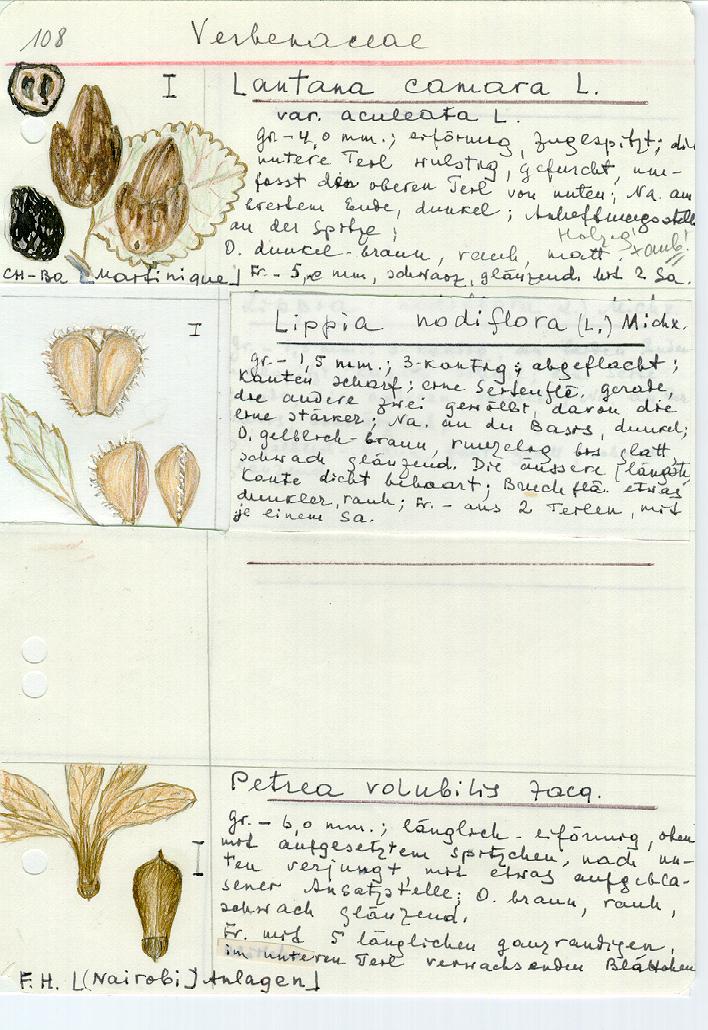 108 Verbenaceae
I Lantana camara L.
var. aculeata L.
Gr. - 4,0 mm.; eiförmig, zugespitzt; die
untere Teil wulstig, gefurcht, um-
fasst den oberen Teil von unten; Na. am
breitem Ende, dunkel; Anheftungsstelle
an der Spitze; Holzig!
O. dunkel-braun, rauh, matt.
CH-Ba [Martinique] Fr. - 5,0 mm, schwarz, glänzend. Mit 2 Sa.
I Lippia nodiflora (L.) Michx.
Gr. - 1,5 mm.; 3-kantig; abgeflacht;
Kanten scharf; eine Seitenflä. gerade,
die andere zwei gewölbt, davon die
eine stärker; Na. an der Basis, dunkel;
O. gelblich-braun, runzelig bis glatt,
schwach glänzend. Die äussere (längste)
Kante dicht behaart; Bruchflä. etwas
dunkler, rauh; Fr. - aus 2 Teilen, mit
je einem Sa.
Petrea volubilis Jacq.
I Gr. - 6,0 mm.; länglich-eiförmig, oben
mit aufgesetztem Spitzchen, nach un-
ten verjüngt, mit etwas aufgebla-
sener Ansatzstelle; O. braun, rauh,
schwach glänzend.
Fr. mit 5 länglichen ganzrandigen,
im unteren Teil verwachsenden Blättchen
F. H. [(Nairobi) Anlagen]